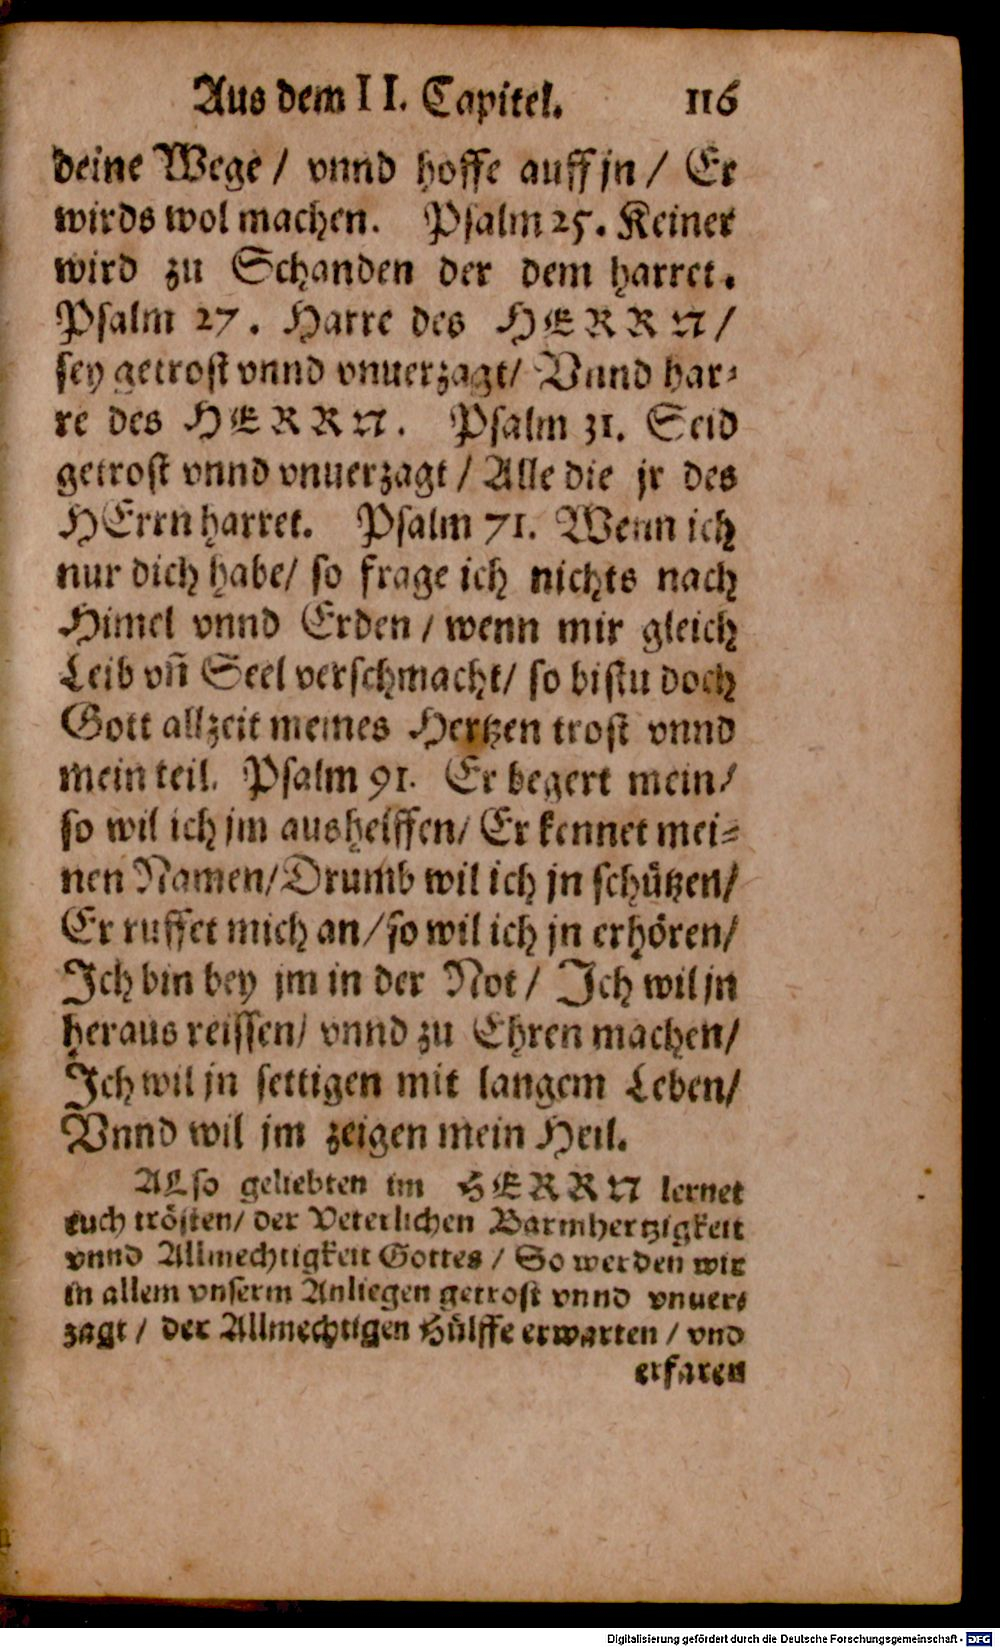 Aus dem II. Capitel. 116
deine Wege / vnnd hoffe auff jn / Er
wirds wol machen. Psalm 25. Keiner
wird zu Schanden der dem harret.
Psalm 27. Harre des HERRN /
sey getrost vnnd vnuerzagt / Vnnd har-
re des HERRN. Psalm 31. Seid
getrost vnnd vnuerzagt / Alle die jr des
HErrn harret. Psalm 71. Wenn ich
nur dich habe / so frage ich nichts nach
Himel vnnd Erden / wenn mir gleich
Leib vn̄ Seel verschmacht / so bistu doch
Gott allzeit meines Hertzen trost vnnd
mein teil. Psalm 91. Er begert mein /
so wil ich jm aushelffen / Er kennet mei-
nen Namen / Drumb wil ich jn schützen /
Er ruffet mich an / so wil ich jn erhören /
Ich bin bey jm in der Not / Ich wil jn
heraus reissen / vnnd zu Ehren machen /
Ich wil jn settigen mit langem Leben /
Vnnd wil jm zeigen mein Heil.
ALso geliebten im HERRN lernet
euch trösten / der Veterlichen Barmhertzigkeit
vnnd Allmechtigkeit Gottes / So werden wir
in allem vnserm Anliegen getrost vnnd vnuer-
zagt / der Allmechtigen Hülffe erwarten / vnd
erfaren
Digitalisierung gefördert durch die Deutsche Forschungsgemeinschaft - DFG